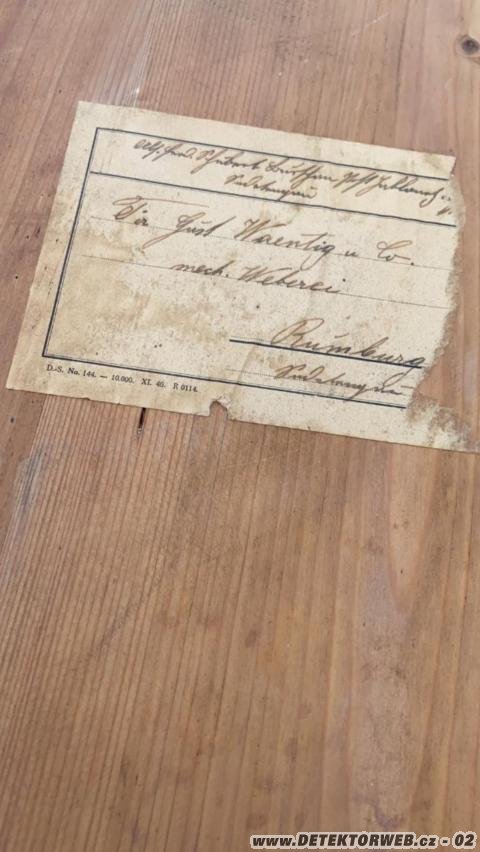 Schubert
Sudetengau
Fir Gust Waentig u Co.
mech. Weberei
Rumburg
Sudetengau
D.-S. No. 144. — 10.000. XI. 40. R 0114.
www.DETEKTORWEB.cz - 02